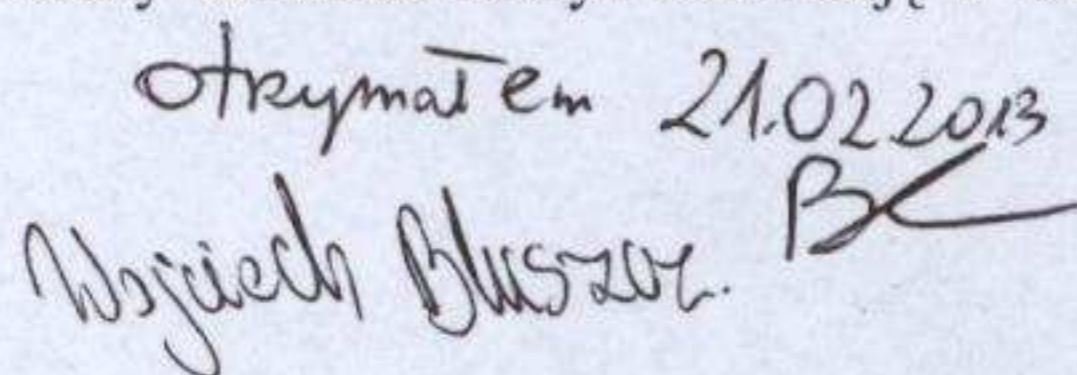 otrzymałem 21.02.2013
Wojciech Bluszcz.